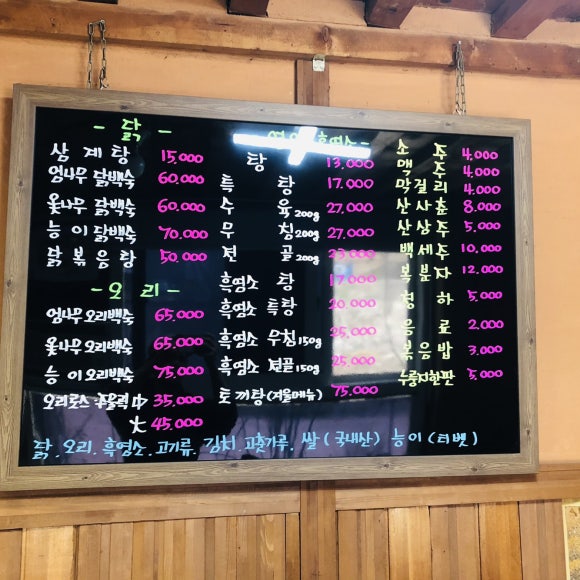 - 닭 -
삼계탕 15,000
엄나무 닭백숙 60,000
옻나무 닭백숙 60,000
능이 닭백숙 70,000
닭볶음탕 50,000
- 오리 -
엄나무오리백숙 65,000
옻나무오리백숙 65,000
능이오리백숙 75,000
오리로스 주물럭 中 35,000
大 45,000
흑염소 -
탕 13,000
특탕 17,000
수육 200g 27,000
무침 200g 27,000
전골 200g 23,000
흑염소 탕 17,000
흑염소 특탕 20,000
흑염소 무침 150g 25,000
흑염소 전골 150g 25,000
토끼탕 (겨울메뉴) 75,000
소주 4,000
맥주 4,000
막걸리 4,000
산사춘 8,000
산상주 5,000
백세주 10,000
복분자 12,000
청하 5,000
음료 2,000
볶음밥 3,000
누룽지한판 5,000
닭. 오리. 흑염소. 고기류. 김치. 고춧가루. 쌀 (국내산) 능이 (티벳)